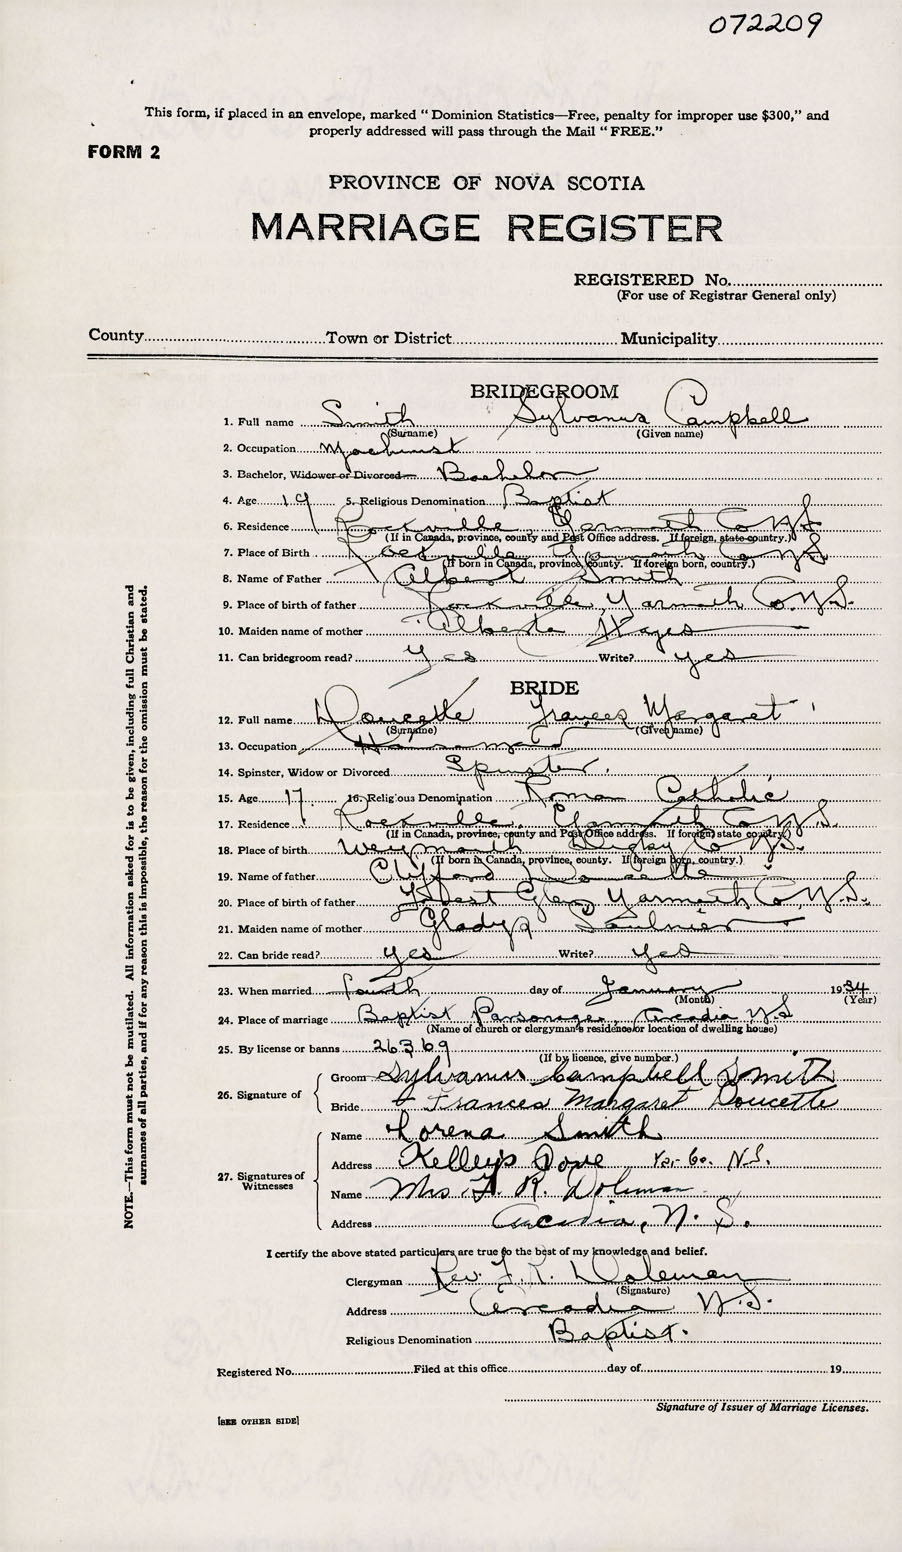 072209
This form, if placed in an envelope, marked “ Dominion Statistics—Free, penalty for improper use $300,” and
properly addressed will pass through the Mail “ FREE.”
FORM 2
PROVINCE OF NOVA SCOTIA
MARRIAGE REGISTER
REGISTERED No.
(For use of Registrar General only)
County Town or District Municipality
BRIDEGROOM
1. Full name Smith Sylvanus Campbell
(Surname) (Given name)
2. Occupation Machinist
3. Bachelor, Widower or Divorced Bachelor
4. Age 19 5. Religious Denomination Baptist
6. Residence Rockville, Yarmouth Co NS
(If in Canada, province, county and Post Office address. If foreign, state country.)
7. Place of Birth Rockville Yarmouth Co NS
(If born in Canada, province, county. If foreign born, country.)
8. Name of Father Albert Smith
9. Place of birth of father Rockville, Yarmouth Co. N.S.
10. Maiden name of mother Alberta Hayes
11. Can bridegroom read? Yes Write? yes
BRIDE
12. Full name Doucette Frances Margaret
(Surname) (Given name)
13. Occupation
14. Spinster, Widow or Divorced Spinster.
15. Age 17. 16. Religious Denomination Roman Catholic
17. Residence Rockville, Yarmouth Co N.S.
(If in Canada, province, county and Post Office address. If foreign, state country.)
18. Place of birth Weymouth Digby Co N.S.
(If born in Canada, province, county. If foreign born, country.)
19. Name of father Clifford Doucette
20. Place of birth of father Forest Glen, Yarmouth Co, N.S.
21. Maiden name of mother Gladys Saulnier
22. Can bride read? yes Write? yes
23. When married fourth day of January 1934
(Month) (Year)
24. Place of marriage Baptist Parsonage, Arcadia N.S
(Name of church or clergyman's residence or location of dwelling house)
25. By license or banns 26369
(If by licence, give number.)
26. Signature of
Groom Sylvanus Campbell Smith
Bride Frances Margaret Doucette
27. Signatures of Witnesses
Name Lorena Smith
Address Kelleys Cove Yar. Co. N.S.
Name Mrs. F. R. Woleman
Address Arcadia, N. S.
I certify the above stated particulars are true to the best of my knowledge and belief.
Clergyman Rev. F. R. Woleman
(Signature)
Address Arcadia N.S.
Religious Denomination Baptist.
Registered No. Filed at this office day of 19
Signature of Issuer of Marriage Licenses.
[SEE OTHER SIDE]
NOTE.—This form must not be mutilated. All information asked for is to be given, including full Christian and
surnames of all parties, and if for any reason this is impossible, the reason for the omission must be stated.